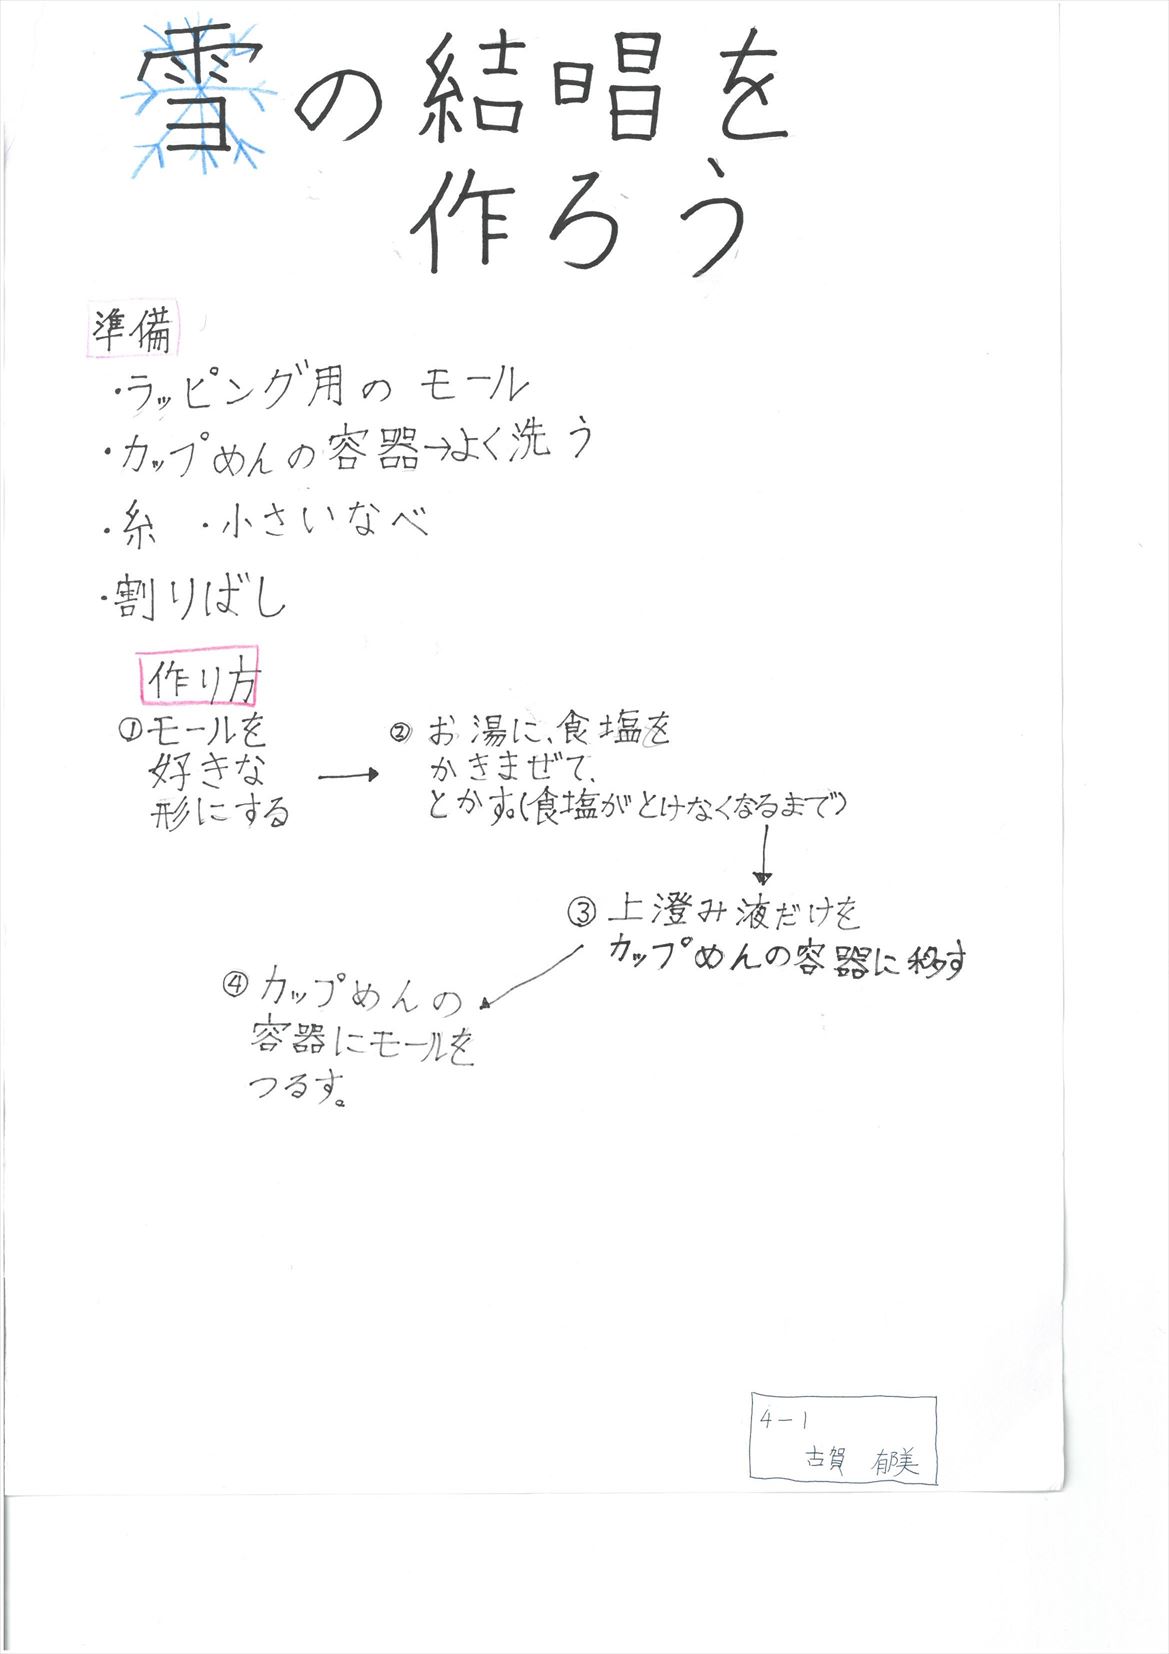 雪の結唱を
作ろう
準備
・ラッピング用のモール
・カップめんの容器→よく洗う
・糸 ・小さいなべ
・割りばし
作り方
①モールを
好きな
形にする
②お湯に、食塩を
かきまぜて、
とかす。(食塩がとけなくなるまで)
③上澄み液だけを
カップめんの容器に移す
④カップめんの
容器にモールを
つるす。
4-1
古賀 郁美